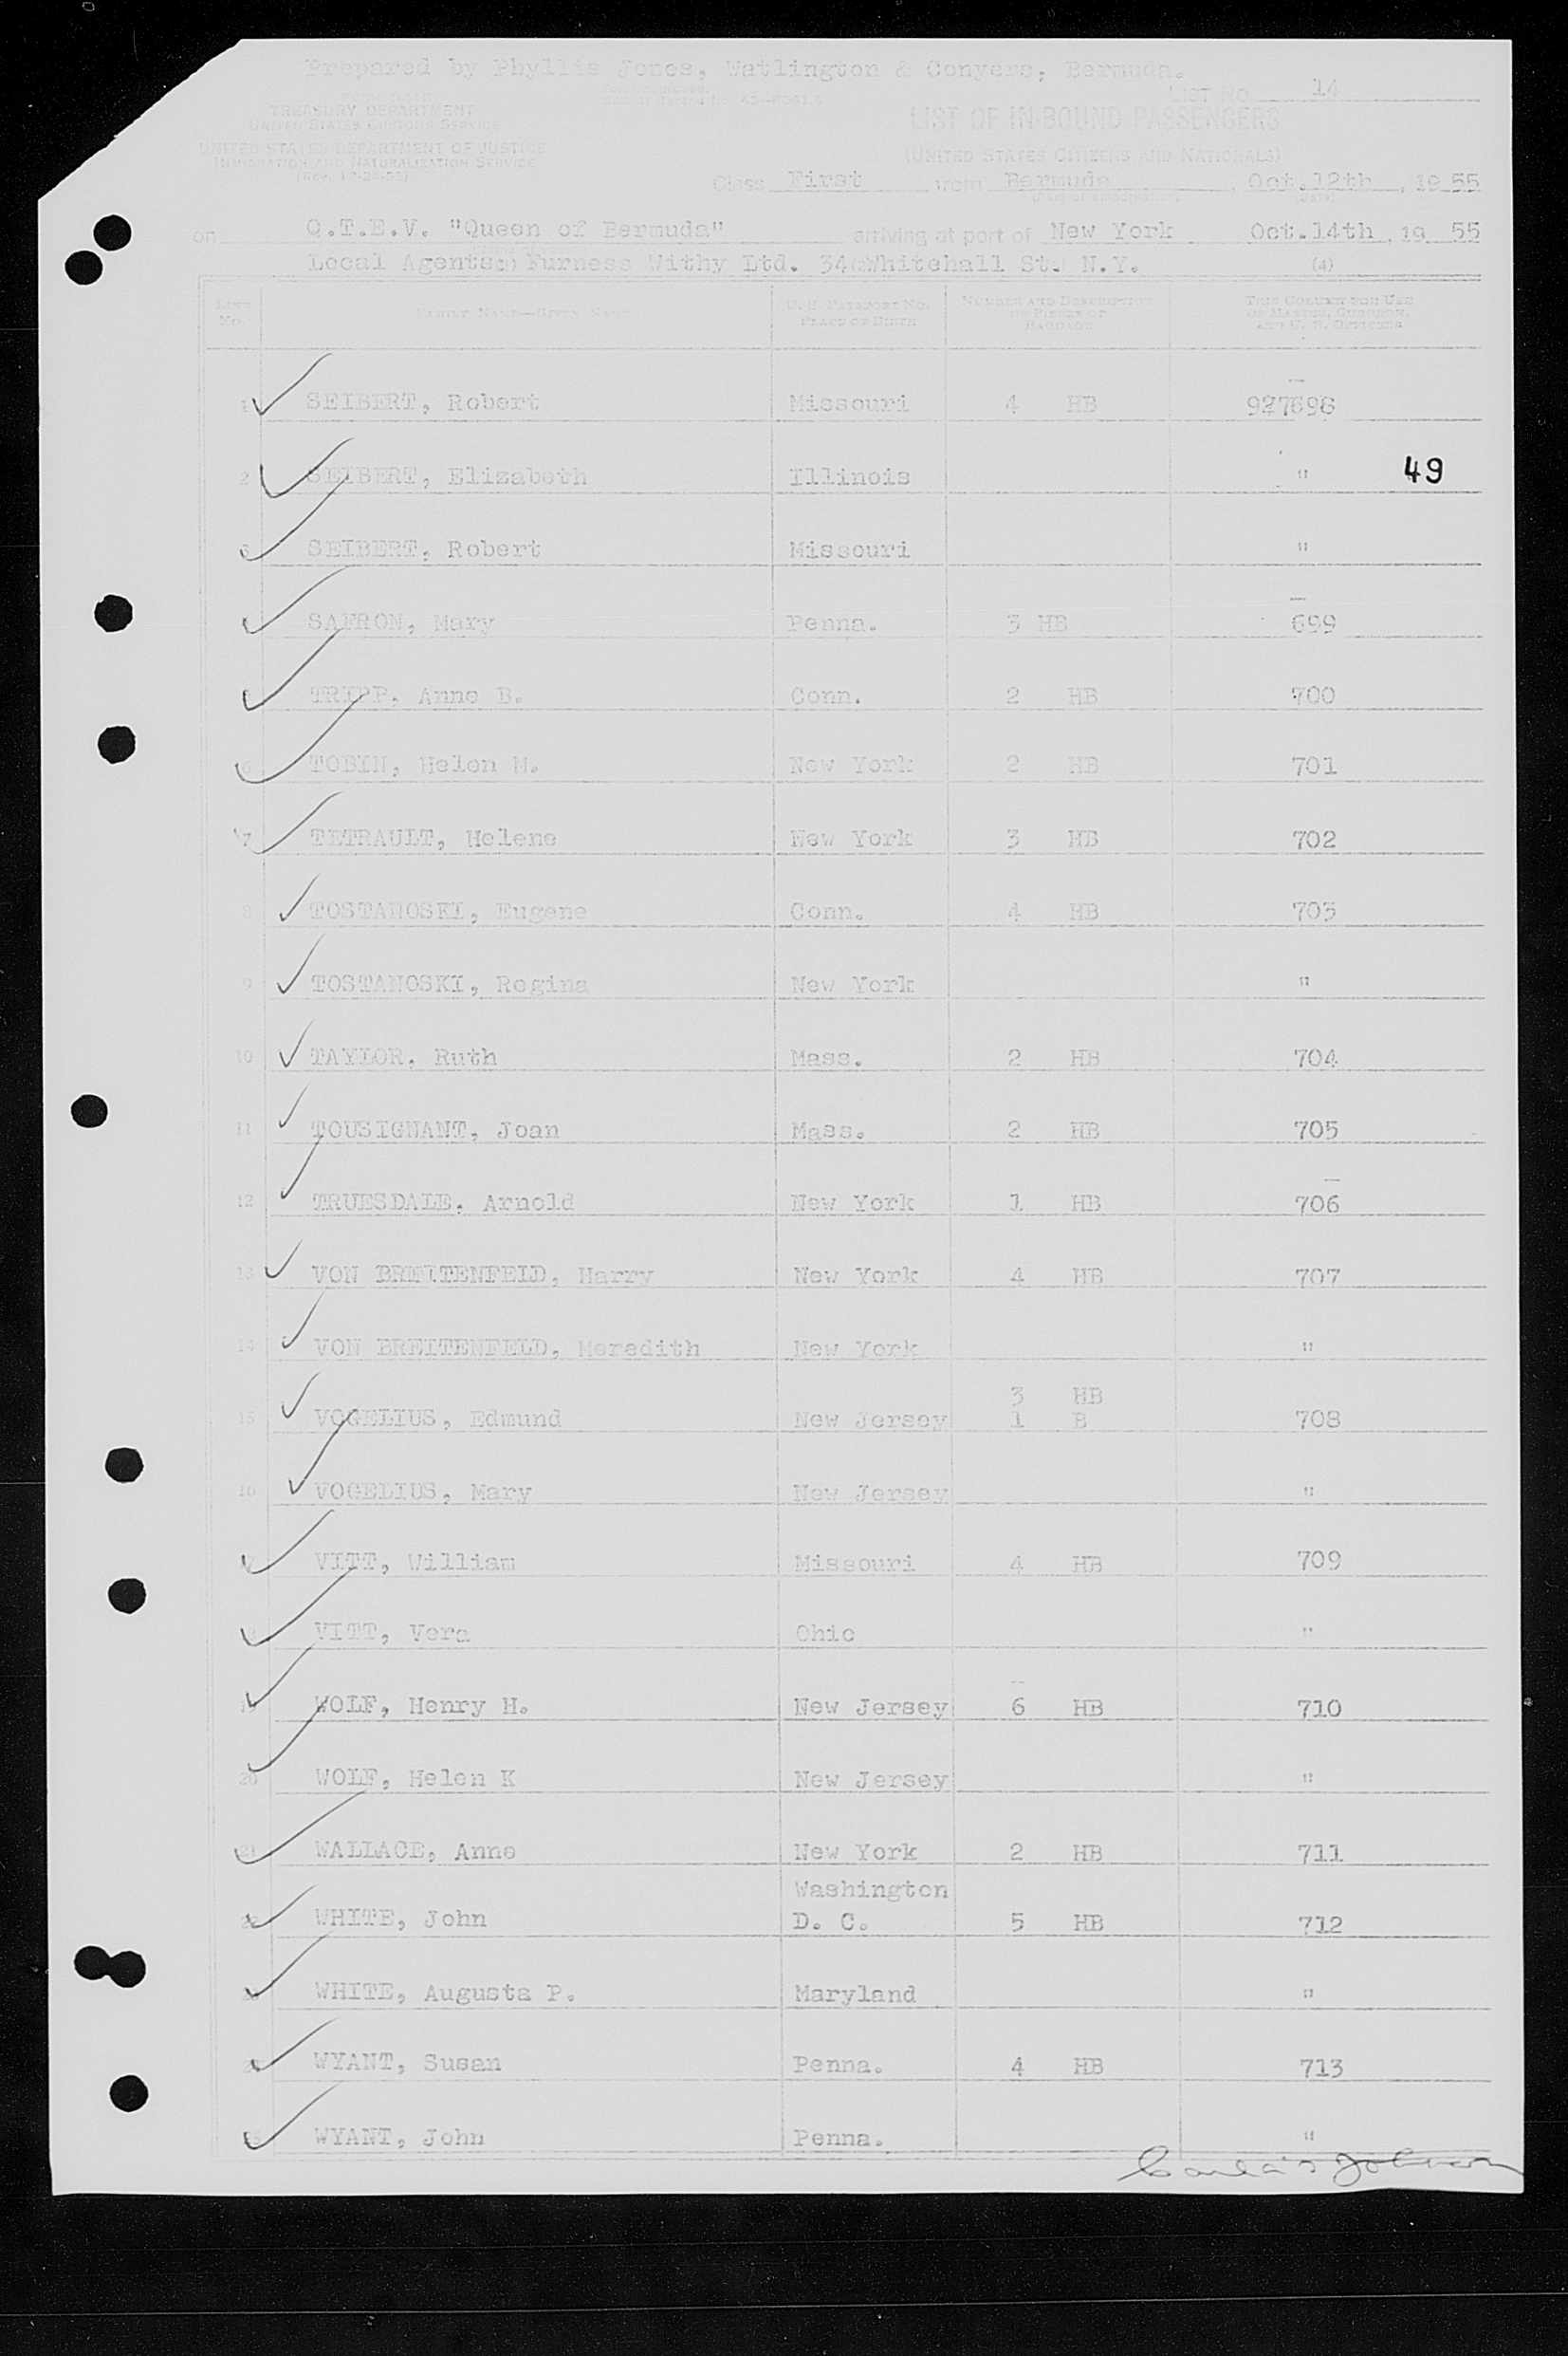 Prepared by Phyllis Jones, Watlington & Conyers, Bermuda.
LIST NO. 14
TREASURY DEPARTMENT
UNITED STATES CUSTOMS SERVICE
UNITED STATES DEPARTMENT OF JUSTICE
IMMIGRATION AND NATURALIZATION SERVICE
LIST OF IN-BOUND PASSENGERS
(UNITED STATES CITIZENS AND NATIONALS)
Class First from Bermuda, Oct.12th, 1955
on Q.T.E.V. "Queen of Bermuda" arriving at port of New York Oct.14th, 19 55
Local Agents: Furness Withy Ltd. 34 Whitehall St. N.Y.
(4)
LINE No. FAMILY NAME—GIVEN NAME U.S. PASSPORT NO. PLACE OF BIRTH NUMBER AND DESCRIPTION OF PIECES OF BAGGAGE THIS COLUMN FOR USE OF MASTER, SURGEON, AND U. S. OFFICERS
1 SEIBERT, Robert Missouri 4 HB 927698
2 SEIBERT, Elizabeth Illinois " 49
3 SEIBERT, Robert Missouri "
SAFRON, Mary Penna. 3 HB 699
TRIPP, Anne B. Conn. 2 HB 700
6 TOBIN, Helen M. New York 2 HB 701
7 TETRAULT, Helene New York 3 HB 702
8 TOSTANOSKI, Eugene Conn. 4 HB 703
9 TOSTANOSKI, Regina New York "
10 TAYLOR, Ruth Mass. 2 HB 704
11 TOUSIGNANT, Joan Mass. 2 HB 705
12 TRUESDALE, Arnold New York 1 HB 706
13 VON BREITENFELD, Harry New York 4 HB 707
14 VON BREITENFELD, Meredith New York "
3 HB
15 VOGELIUS, Edmund New Jersey 1 B 708
16 VOGELIUS, Mary New Jersey "
VITT, William Missouri 4 HB 709
VITT, Vera Ohio "
19 WOLF, Henry H. New Jersey 6 HB 710
20 WOLF, Helen K New Jersey "
21 WALLACE, Anne New York 2 HB 711
Washington
22 WHITE, John D. C. 5 HB 712
WHITE, Augusta P. Maryland "
WYANT, Susan Penna. 4 HB 713
WYANT, John Penna. "